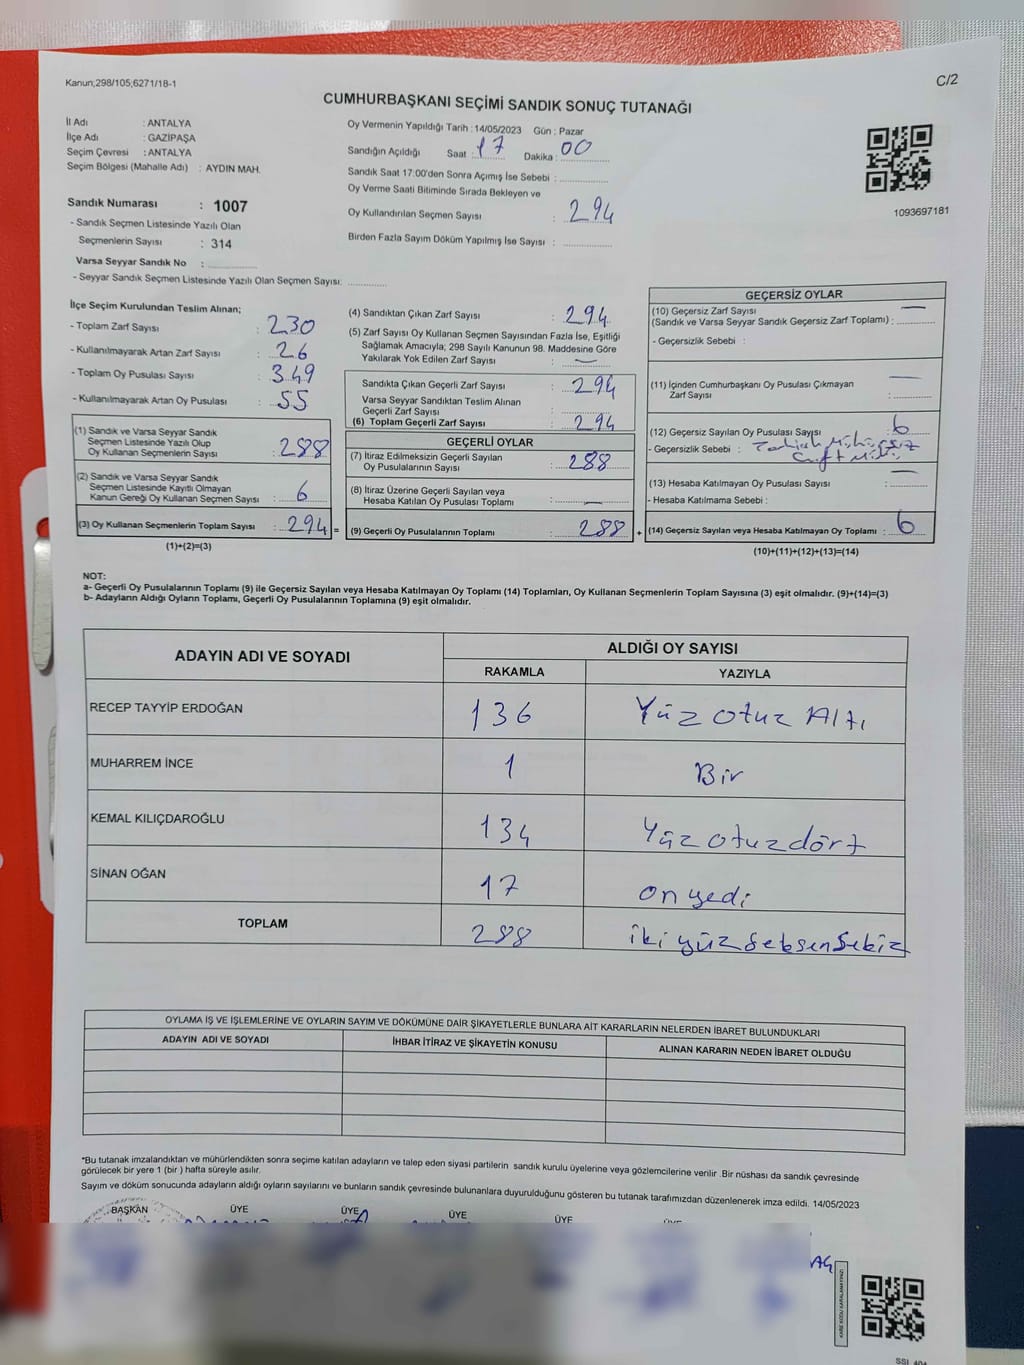 Kanun;298/105;6271/18-1
C/2
CUMHURBAŞKANI SEÇİMİ SANDIK SONUÇ TUTANAĞI
İl Adı : ANTALYA
İlçe Adı : GAZİPAŞA
Seçim Çevresi : ANTALYA
Seçim Bölgesi (Mahalle Adı) : AYDIN MAH.
Sandık Numarası : 1007
- Sandık Seçmen Listesinde Yazılı Olan
Seçmenlerin Sayısı : 314
Varsa Seyyar Sandık No :
- Seyyar Sandık Seçmen Listesinde Yazılı Olan Seçmen Sayısı:
Oy Vermenin Yapıldığı Tarih : 14/05/2023 Gün : Pazar
Sandığın Açıldığı Saat : 17 Dakika : 00
Sandık Saat 17:00'den Sonra Açımış İse Sebebi :
Oy Verme Saati Bitiminde Sırada Bekleyen ve
Oy Kullandırılan Seçmen Sayısı : 294
Birden Fazla Sayım Döküm Yapılmış İse Sayısı :
1093697181
İlçe Seçim Kurulundan Teslim Alınan;
- Toplam Zarf Sayısı : 230
- Kullanılmayarak Artan Zarf Sayısı : 26
- Toplam Oy Pusulası Sayısı : 349
- Kullanılmayarak Artan Oy Pusulası : 55
(1) Sandık ve Varsa Seyyar Sandık
Seçmen Listesinde Yazılı Olup
Oy Kullanan Seçmenlerin Sayısı : 288
(2) Sandık ve Varsa Seyyar Sandık
Seçmen Listesinde Kayıtlı Olmayan
Kanun Gereği Oy Kullanan Seçmen Sayısı : 6
(3) Oy Kullanan Seçmenlerin Toplam Sayısı : 294 =
(1)+(2)=(3)
(4) Sandıktan Çıkan Zarf Sayısı : 294
(5) Zarf Sayısı Oy Kullanan Seçmen Sayısından Fazla İse, Eşitliği
Sağlamak Amacıyla; 298 Sayılı Kanunun 98. Maddesine Göre
Yakılarak Yok Edilen Zarf Sayısı : —
Sandıkta Çıkan Geçerli Zarf Sayısı : 294
Varsa Seyyar Sandıktan Teslim Alınan
Geçerli Zarf Sayısı :
(6) Toplam Geçerli Zarf Sayısı : 294
GEÇERLİ OYLAR
(7) İtiraz Edilmeksizin Geçerli Sayılan
Oy Pusulalarının Sayısı : 288
(8) İtiraz Üzerine Geçerli Sayılan veya
Hesaba Katılan Oy Pusulası Toplamı : —
(9) Geçerli Oy Pusulalarının Toplamı : 288 +
GEÇERSİZ OYLAR
(10) Geçersiz Zarf Sayısı —
(Sandık ve Varsa Seyyar Sandık Geçersiz Zarf Toplamı) :
- Geçersizlik Sebebi :
(11) İçinden Cumhurbaşkanı Oy Pusulası Çıkmayan —
Zarf Sayısı :
(12) Geçersiz Sayılan Oy Pusulası Sayısı : 6
- Geçersizlik Sebebi :
(13) Hesaba Katılmayan Oy Pusulası Sayısı : —
- Hesaba Katılmama Sebebi :
(14) Geçersiz Sayılan veya Hesaba Katılmayan Oy Toplamı : 6
(10)+(11)+(12)+(13)=(14)
NOT:
a- Geçerli Oy Pusulalarının Toplamı (9) ile Geçersiz Sayılan veya Hesaba Katılmayan Oy Toplamı (14) Toplamları, Oy Kullanan Seçmenlerin Toplam Sayısına (3) eşit olmalıdır. (9)+(14)=(3)
b- Adayların Aldığı Oyların Toplamı, Geçerli Oy Pusulalarının Toplamına (9) eşit olmalıdır.
ADAYIN ADI VE SOYADI
ALDIĞI OY SAYISI
RAKAMLA YAZIYLA
RECEP TAYYİP ERDOĞAN 136 Yüz otuz Altı
MUHARREM İNCE 1 Bir
KEMAL KILIÇDAROĞLU 134 Yüz otuz dört
SİNAN OĞAN 17 on yedi
TOPLAM 288 iki yüz seksen sekiz
OYLAMA İŞ VE İŞLEMLERİNE VE OYLARIN SAYIM VE DÖKÜMÜNE DAİR ŞİKAYETLERLE BUNLARA AİT KARARLARIN NELERDEN İBARET BULUNDUKLARI
ADAYIN ADI VE SOYADI İHBAR İTİRAZ VE ŞİKAYETİN KONUSU ALINAN KARARIN NEDEN İBARET OLDUĞU
*Bu tutanak imzalandıktan ve mühürlendikten sonra seçime katılan adayların ve talep eden siyasi partilerin sandık kurulu üyelerine veya gözlemcilerine verilir .Bir nüshası da sandık çevresinde
görülecek bir yere 1 (bir ) hafta süreyle asılır.
Sayım ve döküm sonucunda adayların aldığı oyların sayılarını ve bunların sandık çevresinde bulunanlara duyurulduğunu gösteren bu tutanak tarafımızdan düzenlenerek imza edildi. 14/05/2023
BAŞKAN ÜYE ÜYE ÜYE ÜYE